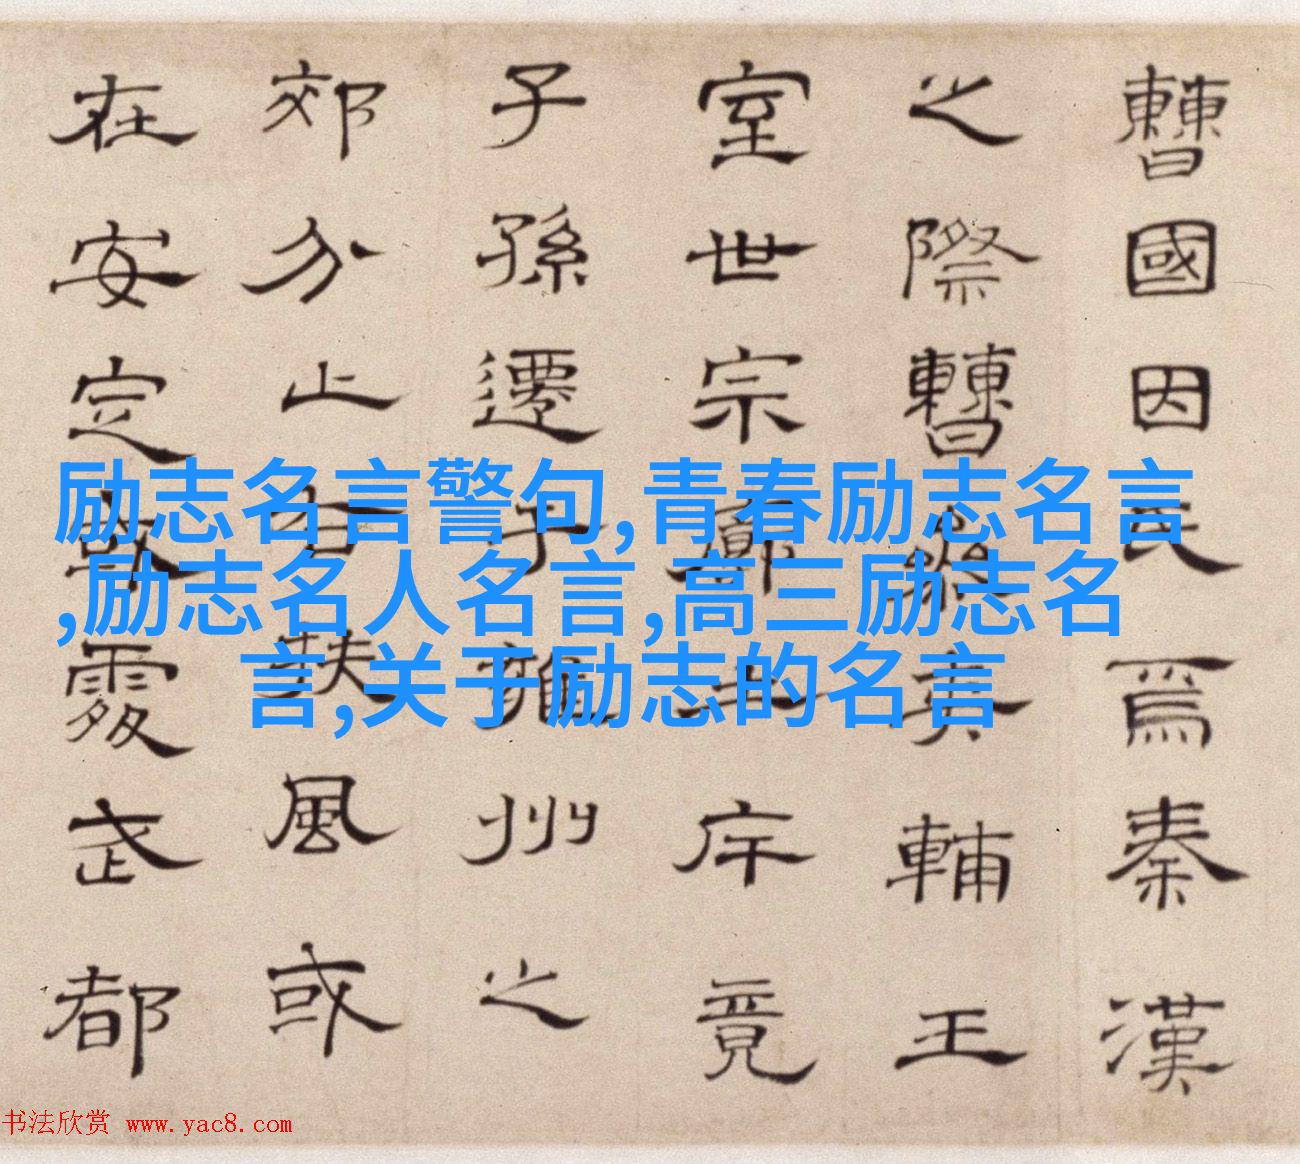 曹國因氏焉秦漢
之際曹參夾輔王
室世宗廓土斥竟
子孫遷于雍州之
郊分止右扶風或
在安定或處武都
励志名言警句,青春励志名言
,励志名人名言,高三励志名
言,关于励志的名言
书法欣赏 www.yac8.com